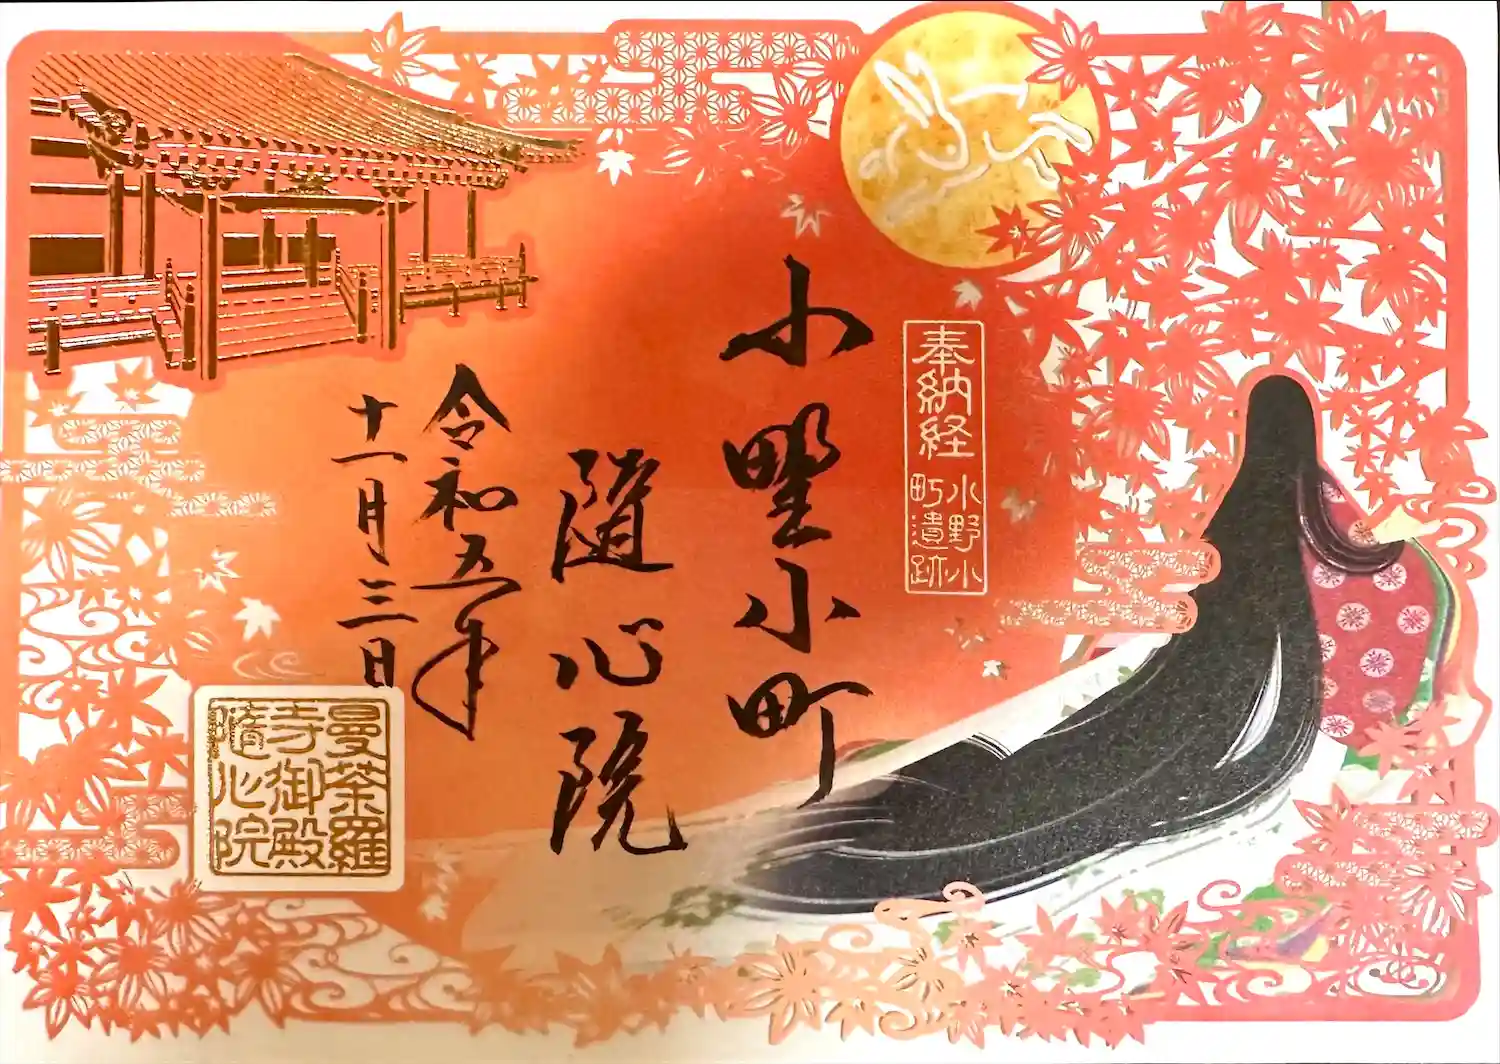 奉納経
小野小
町遺跡
小野小町
随心院
令和五年
十一月三日
曼荼羅
寺御殿
随心院